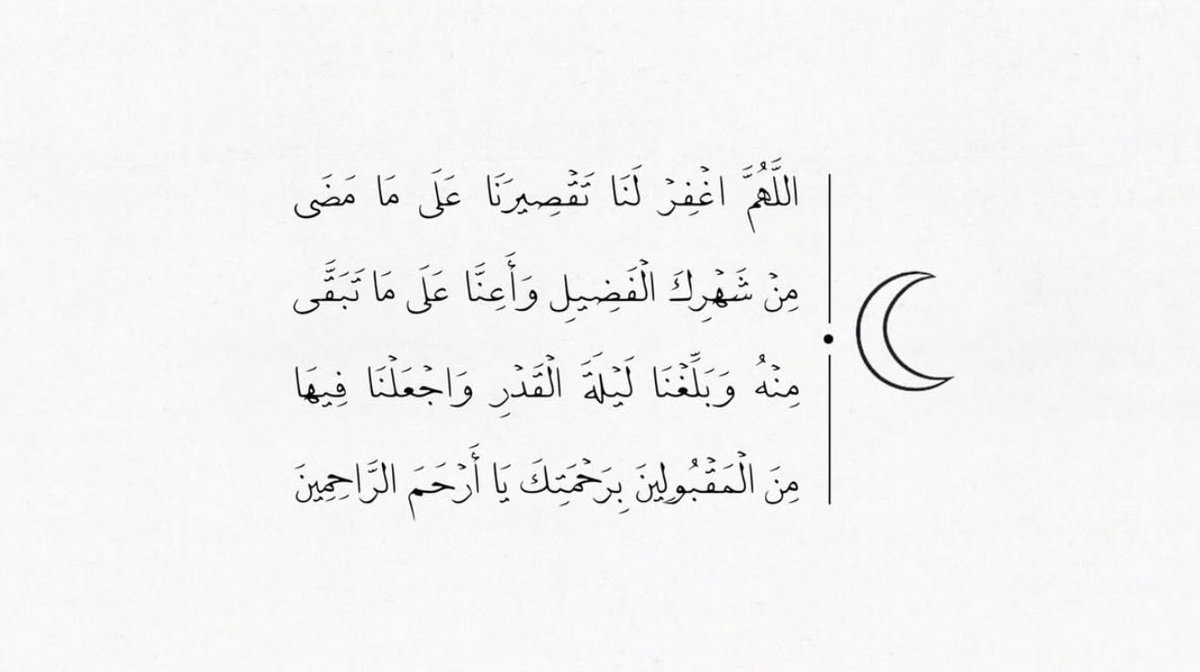 اللَّهُمَّ اغْفِرْ لَنَا تَقْصِيرَنَا عَلَى مَا مَضَى
مِنْ شَهْرِكَ الْفَضِيلِ وَأَعِنَّا عَلَى مَا تَبَقَّى
مِنْهُ وَبَلِّغْنَا لَيْلَةَ الْقَدْرِ وَاجْعَلْنَا فِيهَا
مِنَ الْمَقْبُولِينَ بِرَحْمَتِكَ يَا أَرْحَمَ الرَّاحِمِينَ